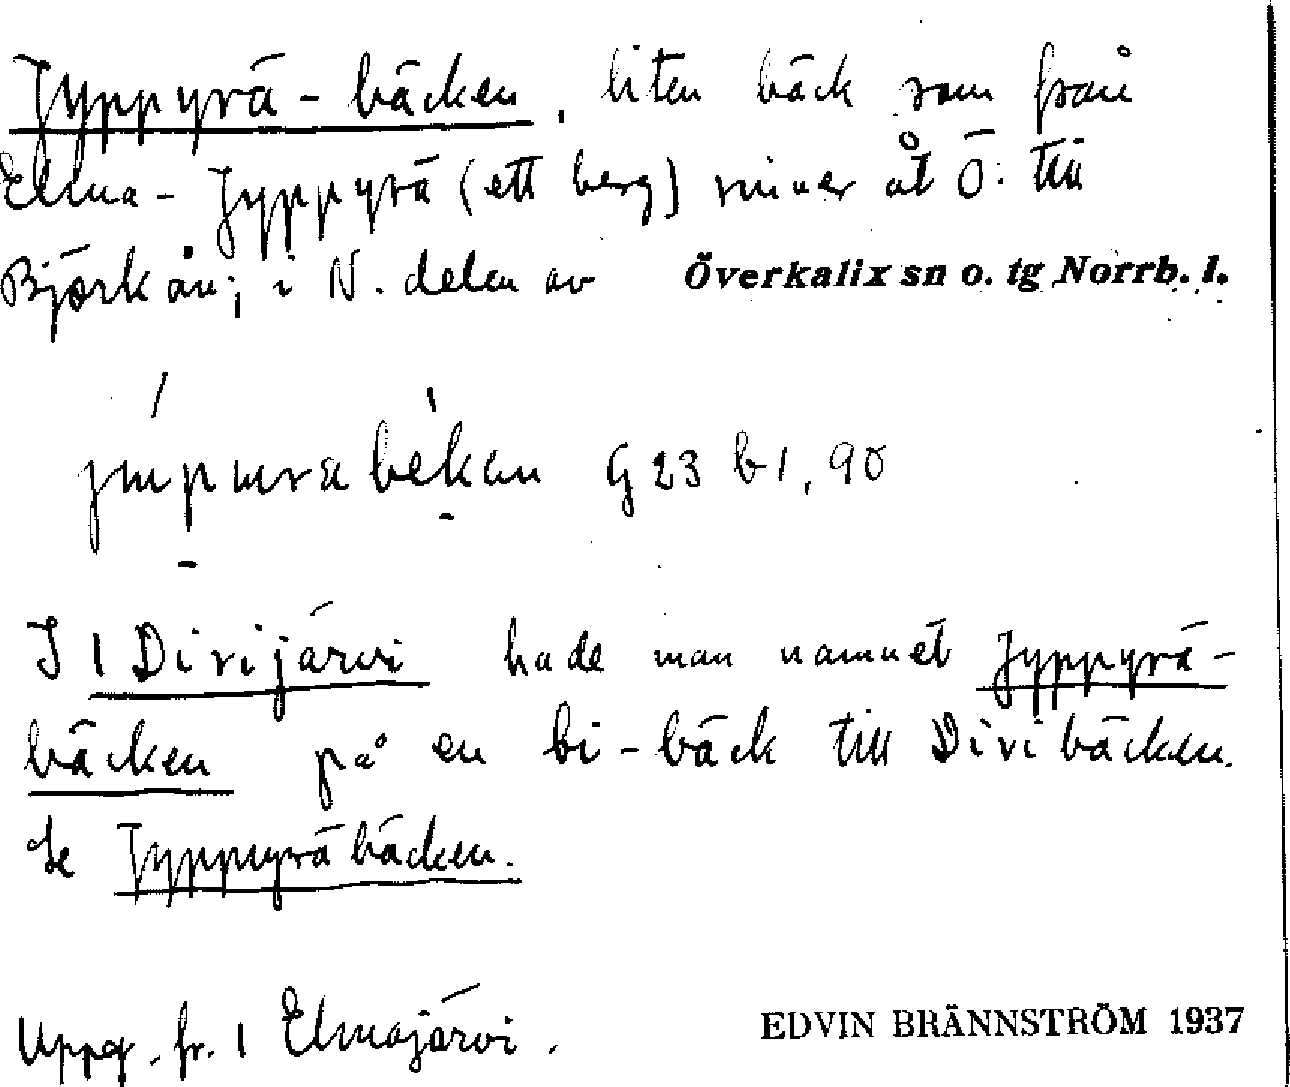 Jyppyrä-bäcken, liten bäck som från
Elma-Jyppyrä (ett berg) rinner åt Ö. till
Björkån; i N. delen av Överkalix sn o. tg Norrb. l.
G 23 b 1, 90
I 1 Divijärvi hade man namnet Jyppyrä-
bäcken på en bi-bäck till Divibäcken.
Se Jyppyräbäcken.
Uppg. fr. 1 Elmajärvi.
EDVIN BRÄNNSTRÖM 1937